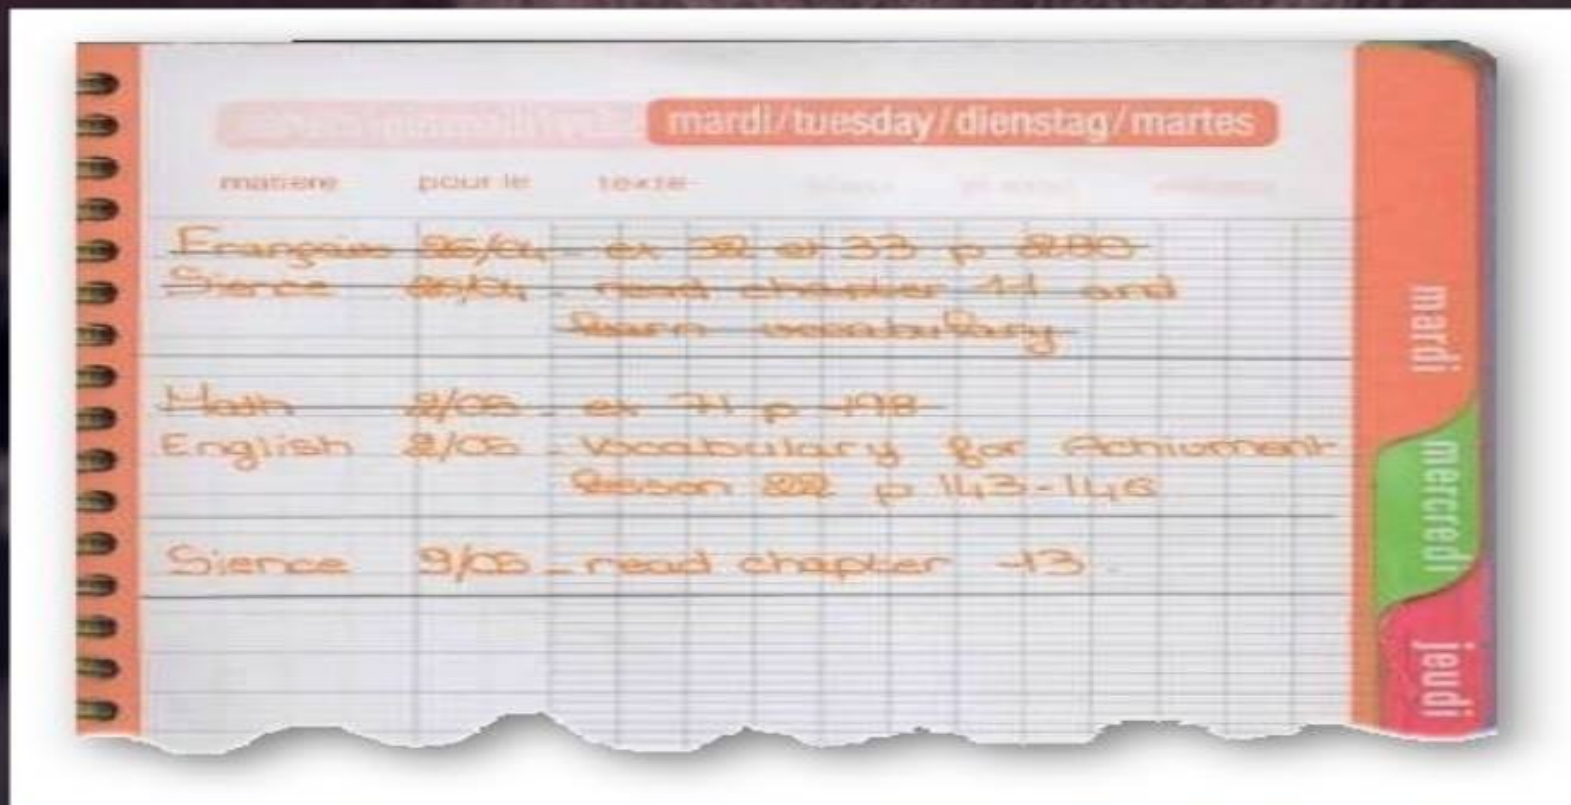 mardi/tuesday/dienstag/martes
matière pour le texte
Français 25/04 - ex 32 et 33 p 280
Sience - read chapter 11 and
learn vocabulary
Math 2/05 - ex 71 p 198
English 2/05 - Vocabulary for Achiument
lesson 22 p 143-146
Sience 9/05 - read chapter 13.
mardi
mercredi
jeudi